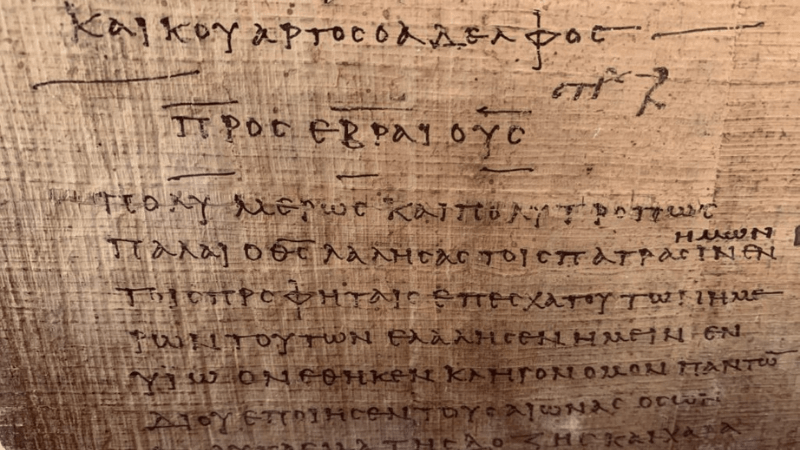 ΚΑΙ ΚΟΥΑΡΤΟϹ Ο ΑΔΕΛΦΟϹ
ΠΡΟϹ ΕΒΡΑΙΟΥϹ
ΠΟΛΥΜΕΡΩϹ ΚΑΙ ΠΟΛΥΤΡΟΠΩϹ
ΗΜΩΝ
ΠΑΛΑΙ Ο Θ̅Ϲ̅ ΛΑΛΗϹΑϹ ΤΟΙϹ ΠΑΤΡΑϹΙΝ ΕΝ
ΤΟΙϹ ΠΡΟΦΗΤΑΙϹ ΕΠ ΕϹΧΑΤΟΥ ΤΩΝ ΗΜΕ
ΡΩΝ ΤΟΥΤΩΝ ΕΛΑΛΗϹΕΝ ΗΜΕΙΝ ΕΝ
ΥΙΩ ΟΝ ΕΘΗΚΕΝ ΚΛΗΡΟΝΟΜΟΝ ΠΑΝΤΩ̅
ΔΙ ΟΥ ΕΠΟΙΗϹΕΝ ΤΟΥϹ ΑΙΩΝΑϹ ΟϹ ΩΝ
ΤΗϹ ΔΟΞΗϹ ΚΑΙ ΧΑΡΑ